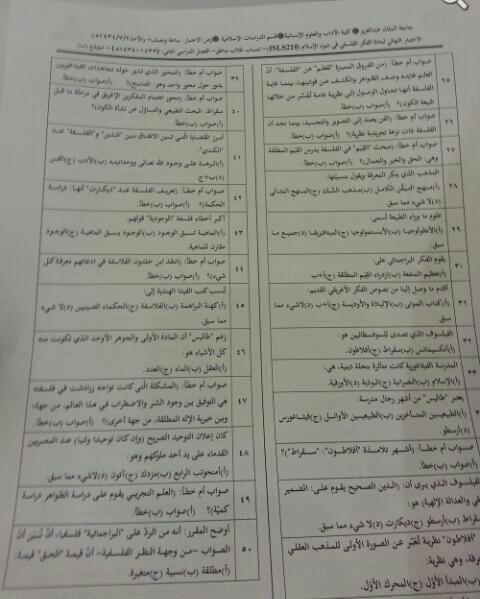 جامعة الملك عبدالعزيز * كلية الآداب والعلوم الإنسانية * قسم الدراسات الإسلامية
الاختبار النهائي لمادة الفكر الفلسفي في ضوء الإسلام (ISLS210) - انتساب طلاب مناطق - الفصل الدراسي الثاني: ١٤٣٣-١٤٣٤هـ
٢٥
صواب أم خطأ: (من الفروق المميزة "للعلم" عن "الفلسفة": أنّ
العلم غايته وصف الظواهر والكشف عن قوانينها، بينما غاية
الفلسفة أنها تحاول الوصول إلى نظرية عامة تُفسّر من خلالها
طبيعة الكون)؟ أ)صواب ب)خطأ.
٢٦
صواب أم خطأ: (الفن يعمد إلى التصوير والتجسيد، بينما نجد أن
الفلسفة ذات نزعة تجريدية نظرية)؟ أ)صواب ب)خطأ.
٢٧
صواب أم خطأ: (مبحث "القيم" في الفلسفة يدرس القيم المطلقة
وهي: الحق والخير والجمال)؟ أ)صواب ب)خطأ.
٢٨
المذهب الذي ينكر المعرفة ويقول بنسبيّتها:
أ)منهج التيقّن الكامل ب)مذهب الشك ج)المنهج المثالي
د)لا شيء مما سبق.
٢٩
علوم ما وراء الطبيعة تُسمى:
أ)الأنطولوجيا ب)الأبستمولوجيا ج)الميتافيزيقا د)جميع ما
سبق.
٣٠
يقوم الفكر البراجماتي على:
أ)تعظيم المنفعة ب)ازدراء القيم المطلقة ج)أ+ب.
٣١
أقدم ما وصل إلينا من نصوص الفكر الإغريقي القديم:
أ)كتاب الموتى ب)الإلياذة والأوديسة ج)أ+ب د)لاشيء مما
سبق.
٣٢
الفيلسوف الذي تصدى للسوفسطائيين هو:
أ)أنكسيمانس ب)سقراط ج)أفلاطون.
٣٣
المدرسة الفيثاغورية كانت متأثرة بنحلة دينية، هي:
أ)الإسلام ب)النصرانية ج)البوذية د)الأورفية.
يعتبر "طاليس" من أشهر رجال مدرسة:
أ)الطبيعيين المتأخرين ب)الطبيعيين الأوائل ج)فيثاغورس
د)أرسطو.
صواب أم خطأ: (أشهر تلامذة "أفلاطون": "سقراط")؟
أ)صواب ب)خطأ.
الفيلسوف الذي يرى أن: (الدين الصحيح يقوم على: الضمير
والعدالة الإلهية) هو:
سقراط ب)أرسطو ج)ديكارت د)لا شيء مما سبق.
"أفلاطون" نظرية تُعبّر عن الصورة الأولى للمذهب العقلي
وهي نظرية:
ب)المبدأ الأول ج)المحرك الأول.
٣٩
صواب أم خطأ: (المحور الذي يدور حوله مجاهدات الفيثاغوريين
يدور حول محور واحد وهو: التناسخ)؟ أ)صواب ب)خطأ.
٤٠
صواب أم خطأ: (محور اهتمام المفكرين الإغريق في مرحلة ما قبل
سقراط: البحث الطبيعي والتساؤل عن نشأة الكون)؟
أ)صواب ب)خطأ.
٤١
أبرز القضايا التي تبين الاتفاق بين "الدين" و"الفلسفة" عند
"الكندي":
أ)البرهنة على وجود الله تعالى ووحدانيته ب)الأدب ج)الفن
د)ب+ج.
٤٢
صواب أم خطأ: (تعريف الفلسفة عند "ديكارت" أنها: دراسة
الحكمة)؟ أ)صواب ب)خطأ.
٤٣
أكبر أخطاء فلسفة "الوجودية" قولهم:
أ)الماهية تسبق الوجود ب)الوجود يسبق الماهية ج)الوجود
مقارن للماهية.
٤٤
صواب أم خطأ: (انتقد ابن خلدون الفلاسفة في ادعائهم معرفة كل
شيء)؟ أ)صواب ب)خطأ.
٤٥
تُنسب كتب الفيدا الهندية إلى:
أ)كهنة البراهمة ب)الفلاسفة ج)الحكماء الصينيين د)لا شيء
مما سبق.
٤٦
زعم "طاليس" أن المادة الأولى والجوهر الأوحد الذي تكونت منه
كل الأشياء هو:
أ)العقل ب)الماء ج)العدد.
٤٧
صواب أم خطأ: (المشكلة التي كانت تواجه زرادشت في فلسفته
هي التوفيق بين وجود الشر والاضطراب في هذا العالم، من جهة،
وبين خيرية الإله المطلقة، من جهة أخرى)؟ أ)صواب ب)خطأ.
٤٨
كان إعلان التوحيد الصريح (وإن كان توحيدا وثنيا) عند المصريين
القدماء على يد أحد ملوكهم وهو:
أ)أمنحوتب الرابع ب)مزدك ج)آتون د)لاشيء مما سبق.
٤٩
صواب أم خطأ: (العلم التجريبي يقوم على دراسة الظواهر دراسة
كميّة)؟ أ)صواب ب)خطأ.
٥٠
أوضح المقرر: أنه من الردّ على "البراجماتية" فلسفيا، أنْ نُبيّن أنّ
الصواب -من وجهة النظر الفلسفية- أنّ قيمة "الحق" قيمة:
أ)مطلقة ب)نسبية ج)متغيرة.